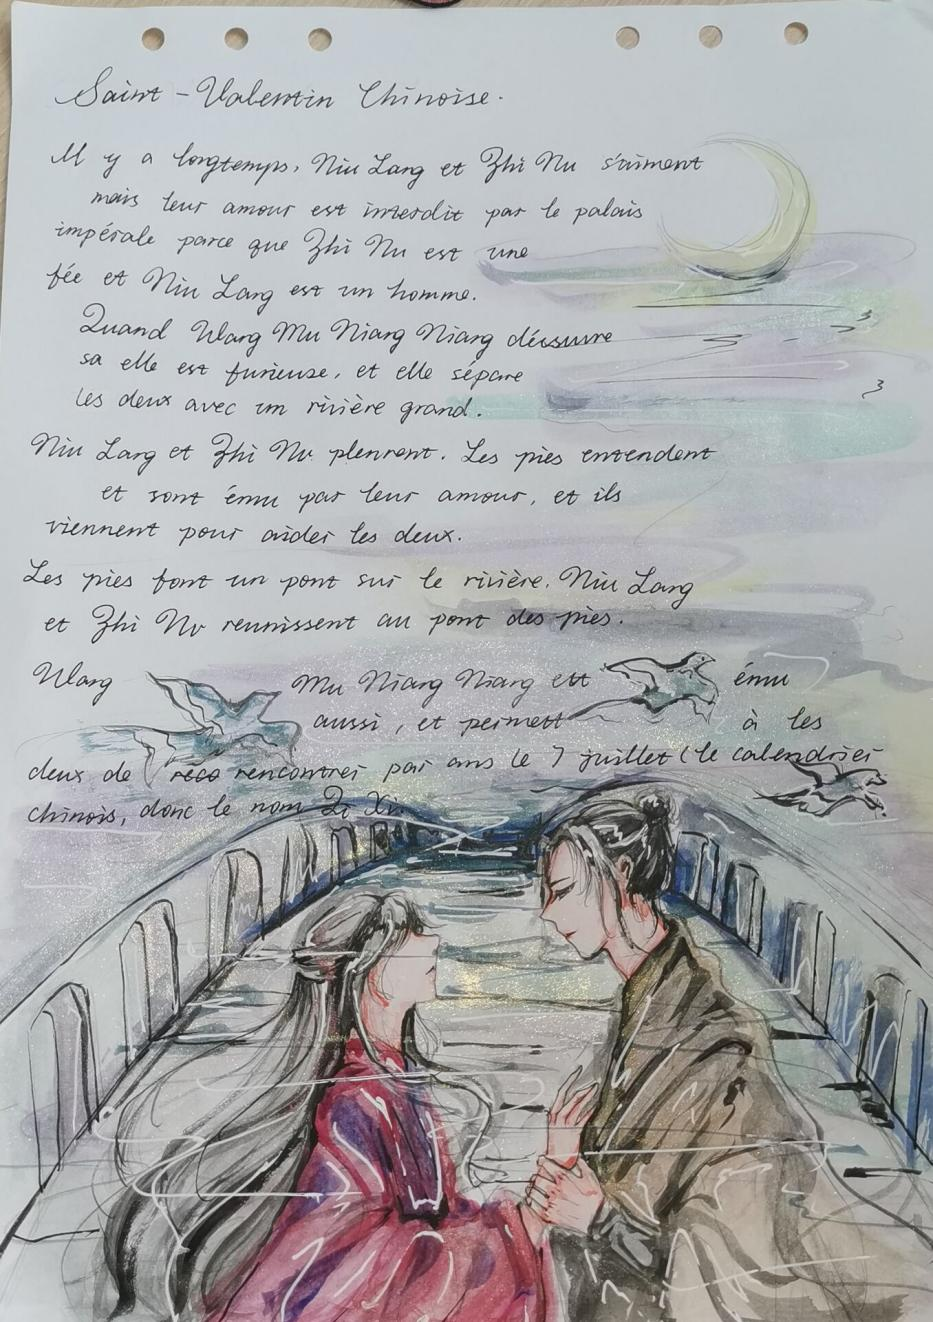 Saint-Valentin Chinoise.
Il y a longtemps, Niu Lang et Zhi Nu s'aiment
mais leur amour est interdit par le palais
impériale parce que Zhi Nu est une
fée et Niu Lang est un homme.
Quand Wang Mu Niang Niang découvre
sa elle est furieuse, et elle sépare
les deux avec un rivière grand.
Niu Lang et Zhi Nu pleurent. Les pies entendent
et sont ému par leur amour, et ils
viennent pour aider les deux.
Les pies font un pont sur le rivière. Niu Lang
et Zhi Nu reunissent au pont des pies.
Wang Mu Niang Niang est ému
aussi, et permett à les
deux de rencontrer par ans le 7 juillet (le calendrier
chinois, donc le nom Qi Xi.